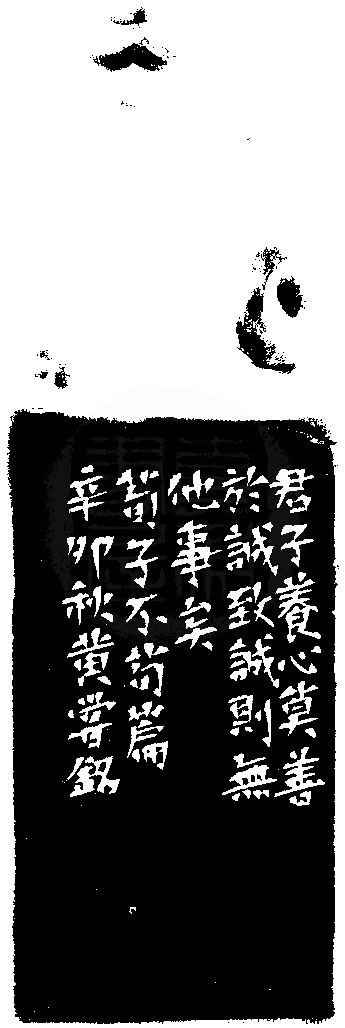 君子養心莫善
於誠致誠則無
他事矣
荀子不苟篇
辛卯秋黄嘗銘